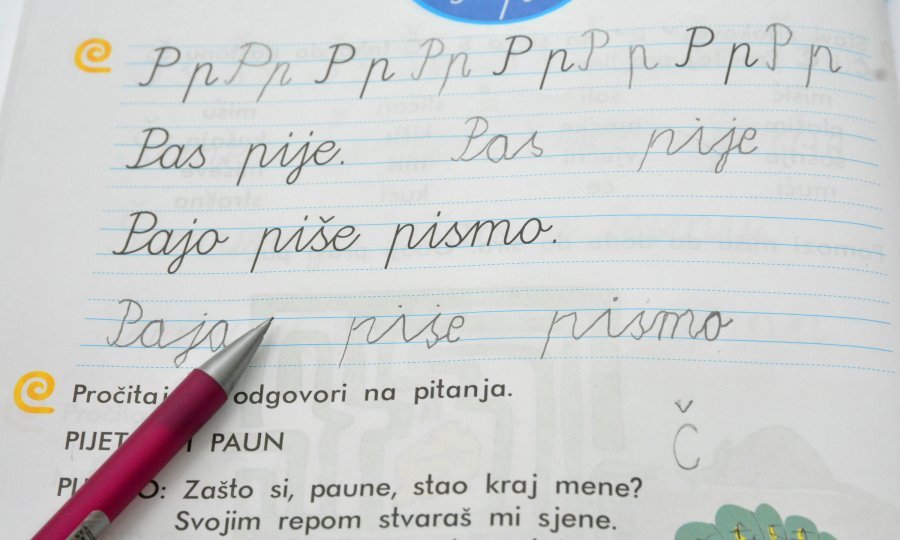 P p P p P p P p P p P p P p P p
Pas pije. Pas pije
Pajo piše pismo.
Pajo piše pismo
Pročitaj odgovori na pitanja.
Č
PAUN
Zašto si, paune, stao kraj mene?
Svojim repom stvaraš mi sjene.